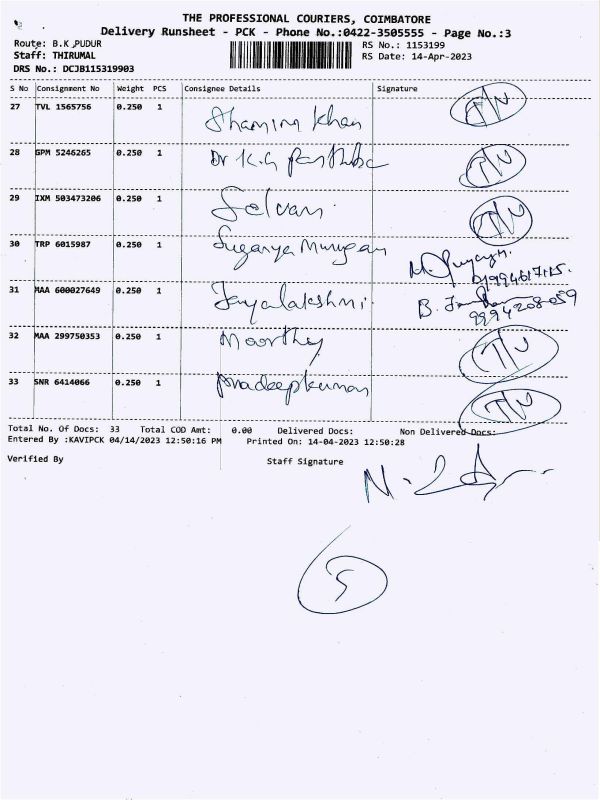 THE PROFESSIONAL COURIERS, COIMBATORE
Delivery Runsheet - PCK - Phone No.:0422-3505555 - Page No.:3
Route: B.K.PUDUR RS No.: 1153199
Staff: THIRUMAL RS Date: 14-Apr-2023
DRS No.: DCJB115319903
S No Consignment No Weight PCS Consignee Details Signature
27 TVL 1565756 0.250 1 Shamina Khan
28 GPM 5246265 0.250 1 Dr K.G
29 IXM 503473206 0.250 1 Selvan
30 TRP 6015987 0.250 1 Suganya Murugan
31 MAA 600027649 0.250 1 Jayalakshmi B.
9994208059
32 MAA 299750353 0.250 1 Moorthy
33 SNR 6414066 0.250 1 Pradeepkumar
Total No. Of Docs: 33 Total COD Amt: 0.00 Delivered Docs: Non Delivered Docs:
Entered By :KAVIPCK 04/14/2023 12:50:16 PM Printed On: 14-04-2023 12:50:28
Verified By Staff Signature
5